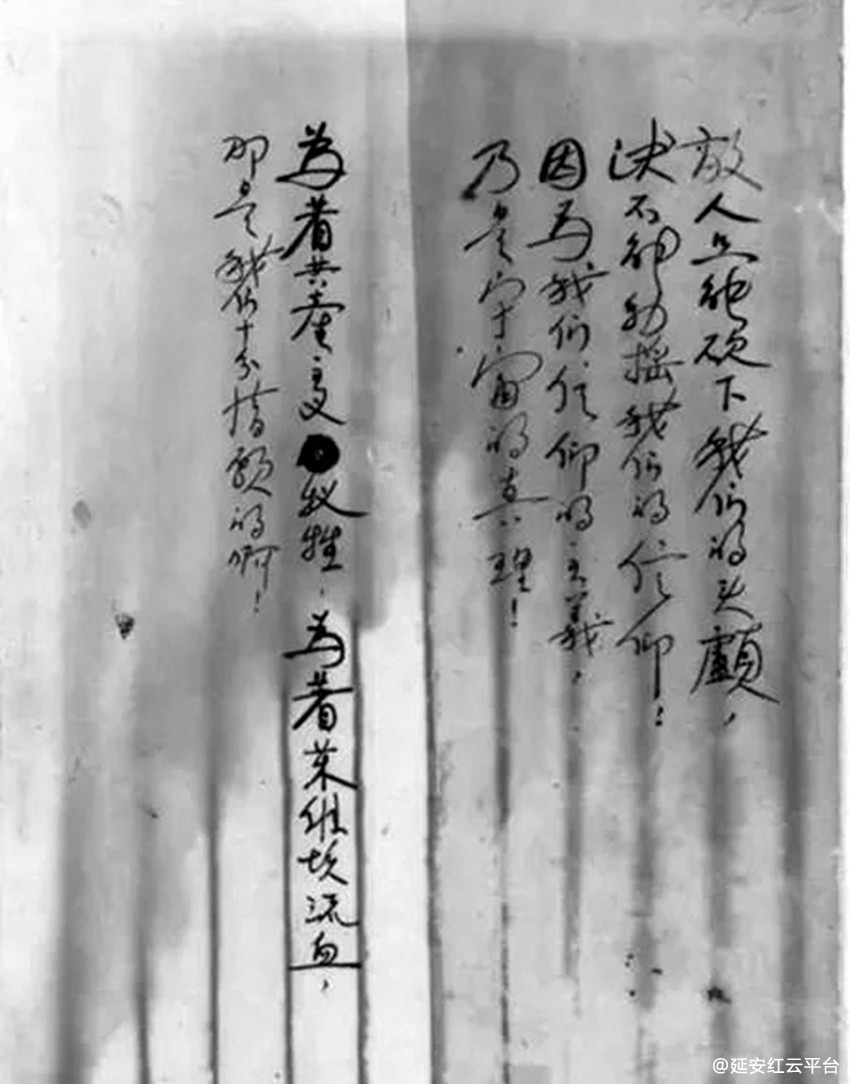 敌人只能砍下我们的头顱，
决不能动摇我们的信仰！
因为我们信仰的主義，
乃是宇宙的真理！
為着共產主义牺牲，為着苏維埃流血，
那是我们十分情願的啊！
@延安红云平台